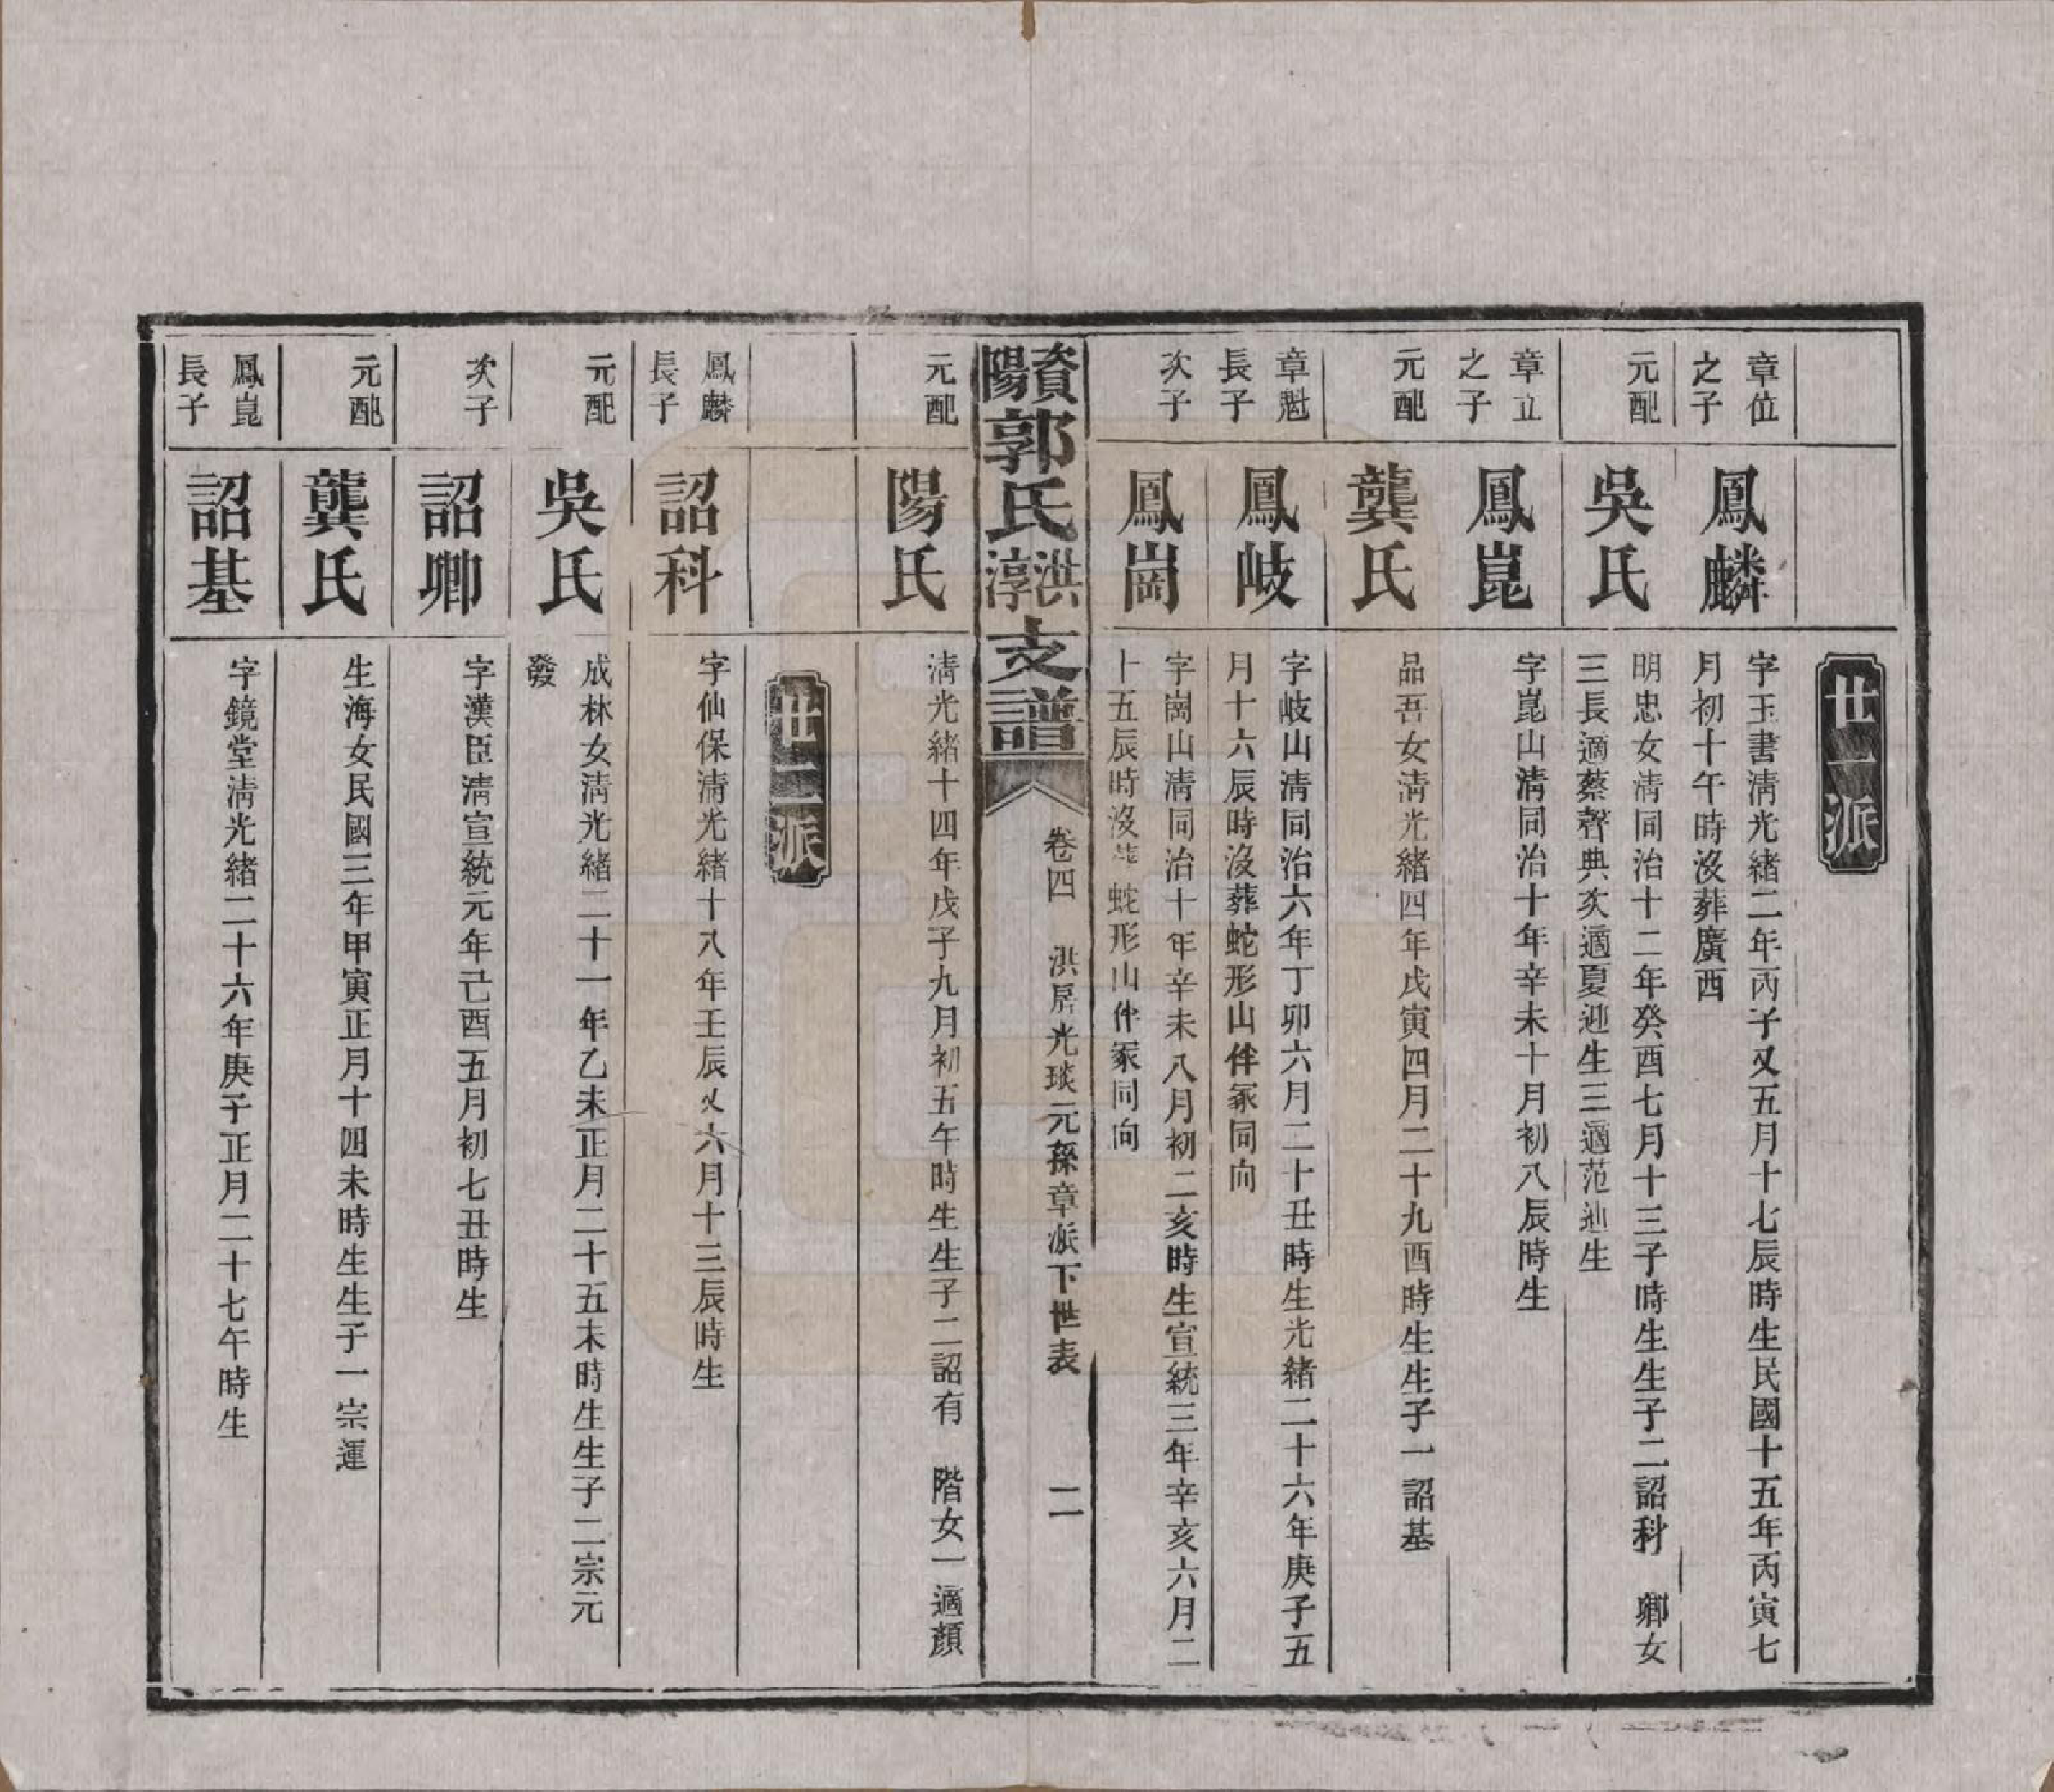 廿一派
章位
之子
鳳麟
字玉書淸光緒二年丙子又五月十七辰時生民國十五年丙寅七
月初十午時沒葬廣西
元配
吳氏
明忠女淸同治十二年癸酉七月十三子時生生子二詔科　卿女
三長適蔡聲典次適夏迎生三適范迪生
章立
之子
鳳崑
字崑山淸同治十年辛未十月初八辰時生
元配
龔氏
品吾女淸光緒四年戊寅四月二十九酉時生生子一詔基
章魁
長子
鳳岐
字岐山淸同治六年丁卯六月二十丑時生光緒二十六年庚子五
月十六辰時沒葬蛇形山伴冢同向
次子
鳳崗
字崗山淸同治十年辛未八月初二亥時生宣統三年辛亥六月二
十五辰時沒葬蛇形山伴冢同向
資陽郭氏洪淳支譜
卷四　洪房光琰元孫章派下世表　二
元配
陽氏
淸光緒十四年戊子九月初五午時生生子二詔有　階女一適顏
廿二派
鳳麟
長子
詔科
字仙保淸光緒十八年壬辰又六月十三辰時生
元配
吳氏
成林女淸光緒二十一年乙未正月二十五未時生生子二宗元
發
次子
詔卿
字漢臣淸宣統元年己酉五月初七丑時生
元配
龔氏
生海女民國三年甲寅正月十四未時生生子一宗運
鳳崑
長子
詔基
字鏡堂淸光緒二十六年庚子正月二十七午時生